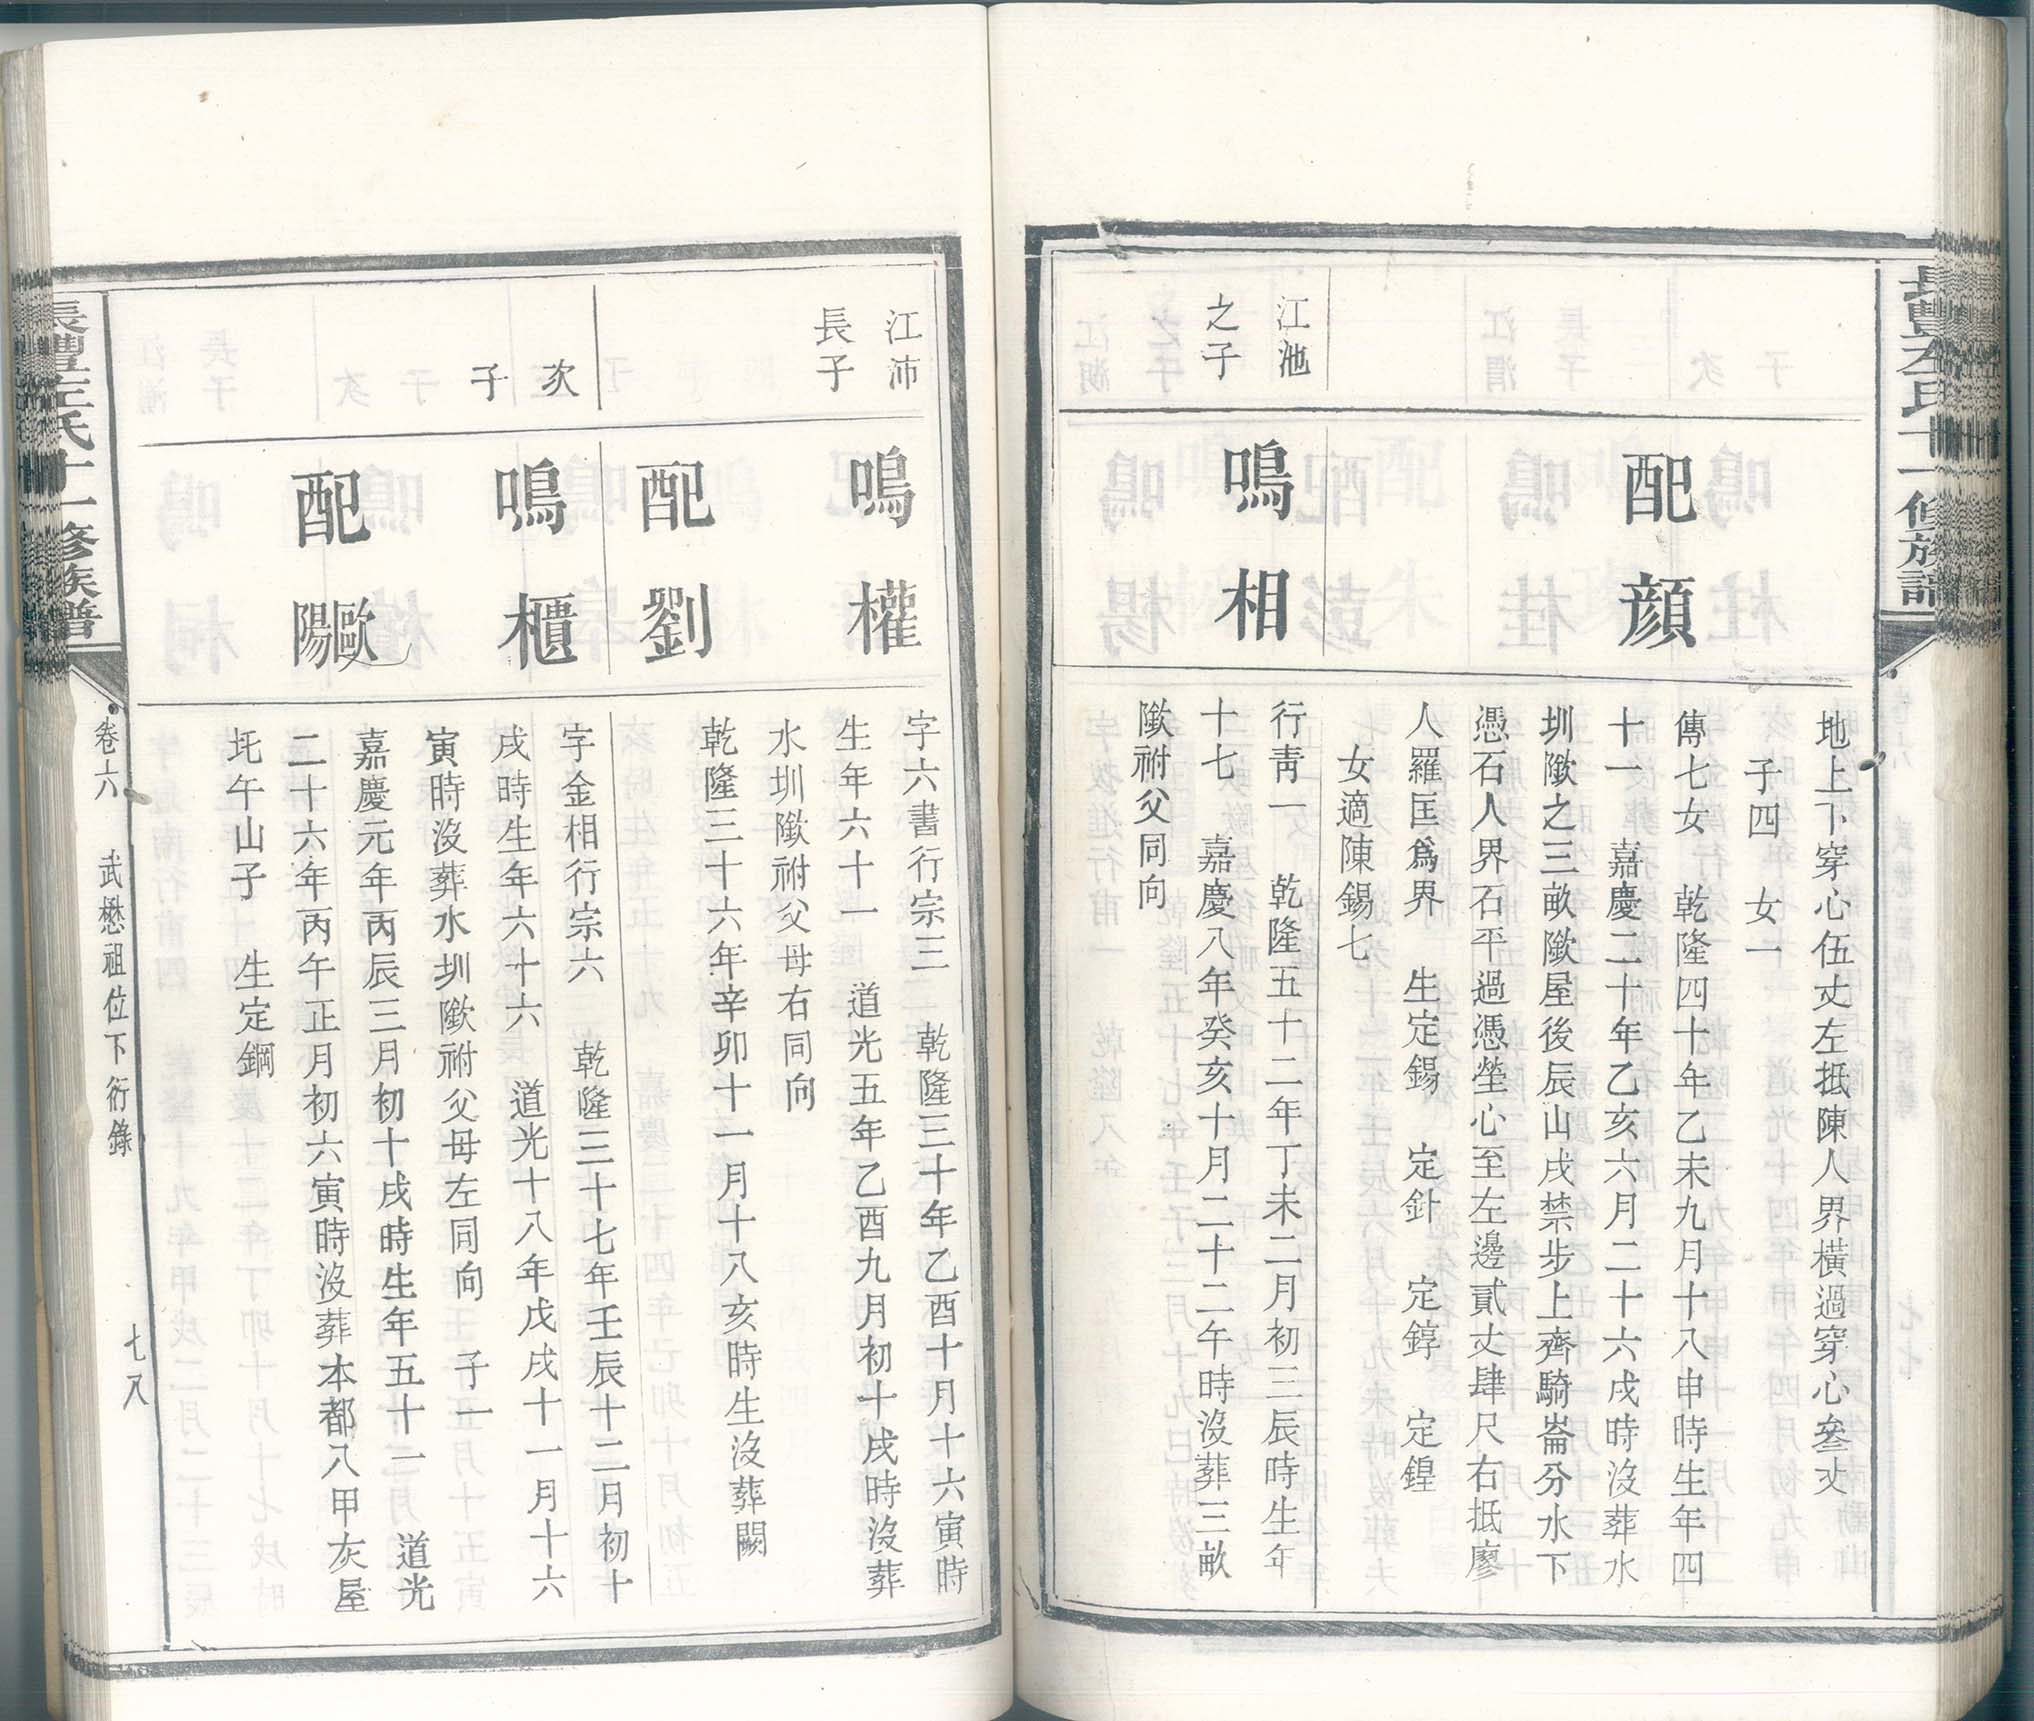 長豐左氏十一修族譜
地上下穿心伍丈左抵陳人界橫過穿心叄丈
子四　女一
配顏
傳七女　乾隆四十年乙未九月十八申時生年四
十一　嘉慶二十年乙亥六月二十六戌時沒葬水
圳墘之三畝墘屋後辰山戌禁步上齊騎崙分水下
憑石人界石平過憑塋心至左邊貳丈肆尺右抵廖
人羅匡爲界　生定錫　定針　定錞　定鍠
女適陳錫七
江池
之子
鳴相
行靑一　乾隆五十二年丁未二月初三辰時生年
十七　嘉慶八年癸亥十月二十二午時沒葬三畝
墘祔父同向
江沛
長子
鳴權
字六書行宗三　乾隆三十年乙酉十月十六寅時
生年六十一　道光五年乙酉九月初十戌時沒葬
水圳墘祔父母右同向
配劉
乾隆三十六年辛卯十一月十八亥時生沒葬闕
次
子
鳴櫃
字金相行宗六　乾隆三十七年壬辰十二月初十
戌時生年六十六　道光十八年戊戌十一月十六
寅時沒葬水圳墘祔父母左同向　子一
配歐陽
嘉慶元年丙辰三月初十戌時生年五十一　道光
二十六年丙午正月初六寅時沒葬本都八甲灰屋
圫午山子　生定鋼
長豐左氏十一修族譜
卷六　武懋祖位下衍錄　七八